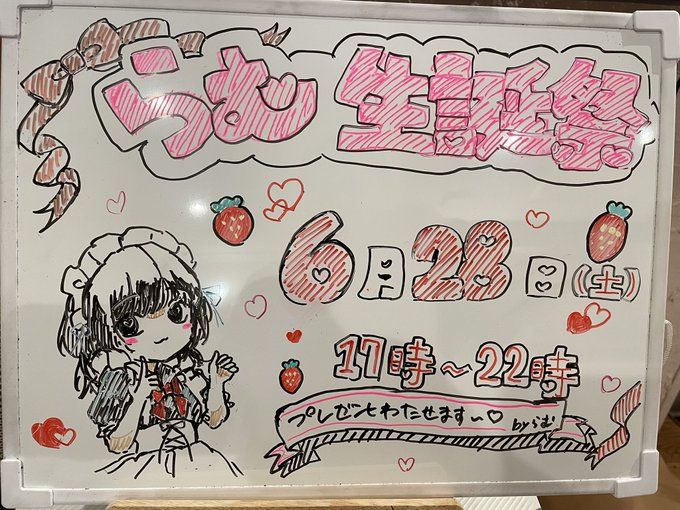 らむ 生誕祭
6月28日(土)
17時～22時
プレゼントわたせます～♡
byらむ